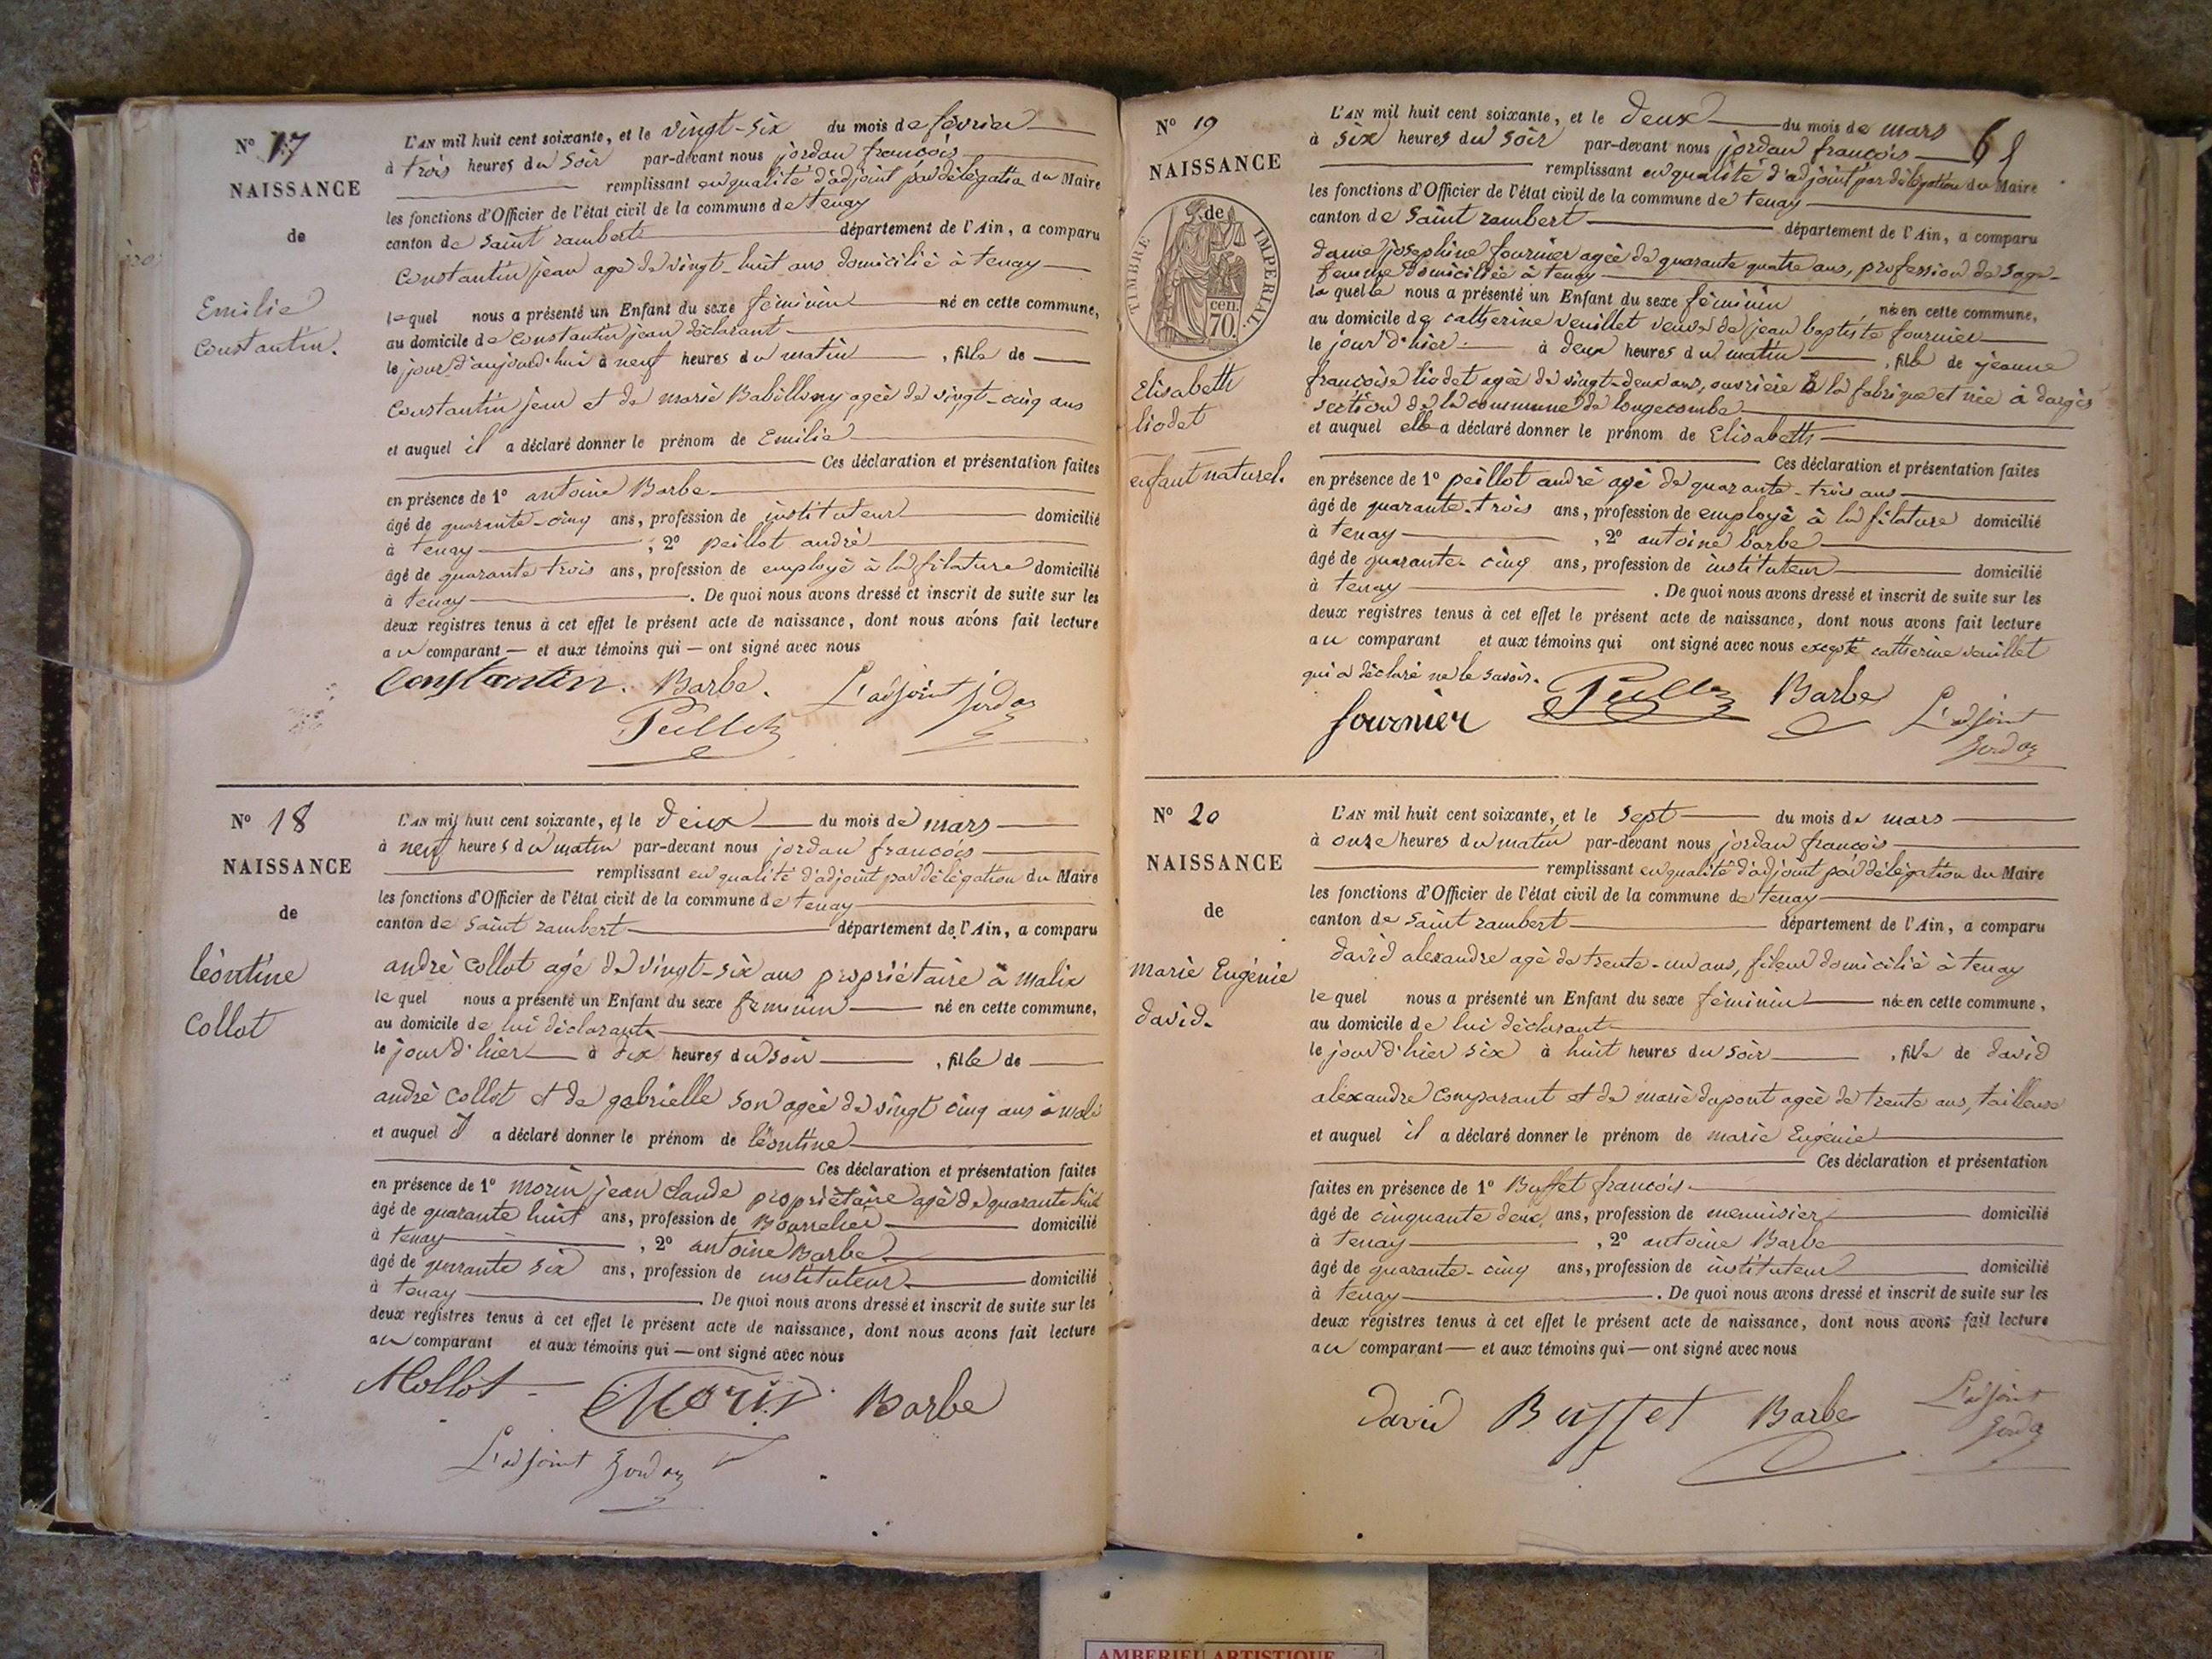 N° 17
NAISSANCE
de
Emilie
Constantin.
L'AN mil huit cent soixante, et le vingt-six du mois de février
à trois heures du soir par-devant nous jordan françois
remplissant en qualité d'adjoint par délégation du Maire
les fonctions d'Officier de l'état civil de la commune de tenay
canton de Saint rambert département de l'Ain, a comparu
Constantin jean agé de vingt-huit ans domicilié à tenay
lequel nous a présenté un Enfant du sexe féminin né en cette commune,
au domicile de Constantin jean déclarant
le jour d'aujourd'hui à neuf heures du matin, fille de
Constantin jean et de marie agée de vingt-cinq ans
et auquel il a déclaré donner le prénom de Emilie
Ces déclaration et présentation faites
en présence de 1° antoine Barbe
âgé de quarante-cinq ans, profession de instituteur domicilié
à tenay, 2° peillot andré
âgé de quarante trois ans, profession de employé à la filature domicilié
à tenay. De quoi nous avons dressé et inscrit de suite sur les
deux registres tenus à cet effet le présent acte de naissance, dont nous avons fait lecture
au comparant — et aux témoins qui — ont signé avec nous
Constantin. Barbe. L'adjoint Jordan
Peillot
N° 18
NAISSANCE
de
léontine
Collot
L'AN mil huit cent soixante, et le deux du mois de mars
à neuf heures du matin par-devant nous jordan françois
remplissant en qualité d'adjoint par délégation du Maire
les fonctions d'Officier de l'état civil de la commune de tenay
canton de Saint rambert département de l'Ain, a comparu
andré Collot agé de vingt-six ans propriétaire à malix
lequel nous a présenté un Enfant du sexe féminin né en cette commune,
au domicile de lui déclarant
le jour d'hier à heures du soir, fille de
andré Collot et de gabrielle Son agée de vingt cinq ans à mali
et auquel il a déclaré donner le prénom de léontine
Ces déclaration et présentation faites
en présence de 1° morin jean Claude propriétaire agé de quarante huit
âgé de quarante huit ans, profession de Bourrelier domicilié
à tenay, 2° antoine Barbe
âgé de quarante six ans, profession de instituteur domicilié
à tenay. De quoi nous avons dressé et inscrit de suite sur les
deux registres tenus à cet effet le présent acte de naissance, dont nous avons fait lecture
au comparant et aux témoins qui — ont signé avec nous
ACollot Morin Barbe
L'adjoint Jordan
N° 19
NAISSANCE
de
TIMBRE IMPERIAL
70 cen.
Elisabeth
liodet
enfant naturel.
61
L'AN mil huit cent soixante, et le deux du mois de mars
à six heures du soir par-devant nous jordan françois
remplissant en qualité d'adjoint par délégation du Maire
les fonctions d'Officier de l'état civil de la commune de tenay
canton de Saint rambert département de l'Ain, a comparu
dame josephine fournier agée de quarante quatre ans, profession de Sage-
femme domiciliée à tenay
laquelle nous a présenté un Enfant du sexe féminin né en cette commune,
au domicile de catherine veuillet veuve de jean baptiste fournier
le jour d'hier à deux heures du matin, fille de jeanne
françoise liodet agée de vingt-deux ans, ouvrière à la fabrique et née à dargis
section de la commune de longecombe
et auquel elle a déclaré donner le prénom de Elisabeth
Ces déclaration et présentation faites
en présence de 1° peillot andré agé de quarante-trois ans
âgé de quarante-trois ans, profession de employé à la filature domicilié
à tenay, 2° antoine barbe
âgé de quarante-cinq ans, profession de instituteur domicilié
à tenay. De quoi nous avons dressé et inscrit de suite sur les
deux registres tenus à cet effet le présent acte de naissance, dont nous avons fait lecture
au comparant et aux témoins qui ont signé avec nous excepté catherine veuillet
qui a déclaré ne le savoir.
fournier Peillot Barbe L'adjoint
Jordan
N° 20
NAISSANCE
de
marie Eugénie
david.
L'AN mil huit cent soixante, et le sept du mois de mars
à onze heures du matin par-devant nous jordan françois
remplissant en qualité d'adjoint par délégation du Maire
les fonctions d'Officier de l'état civil de la commune de tenay
canton de Saint rambert département de l'Ain, a comparu
david alexandre agé de trente-un ans, fileur domicilié à tenay
lequel nous a présenté un Enfant du sexe féminin né en cette commune,
au domicile de lui déclarant
le jour d'hier six à huit heures du soir, fille de david
alexandre comparant et de marie dupont agée de trente ans, tailleuse
et auquel il a déclaré donner le prénom de marie Eugénie
Ces déclaration et présentation
faites en présence de 1° Buffet françois
âgé de cinquante deux ans, profession de menuisier domicilié
à tenay, 2° antoine Barbe
âgé de quarante-cinq ans, profession de instituteur domicilié
à tenay. De quoi nous avons dressé et inscrit de suite sur les
deux registres tenus à cet effet le présent acte de naissance, dont nous avons fait lecture
au comparant — et aux témoins qui — ont signé avec nous
david Buffet Barbe L'adjoint
Jordan
AMBERIEU ARTISTIQUE